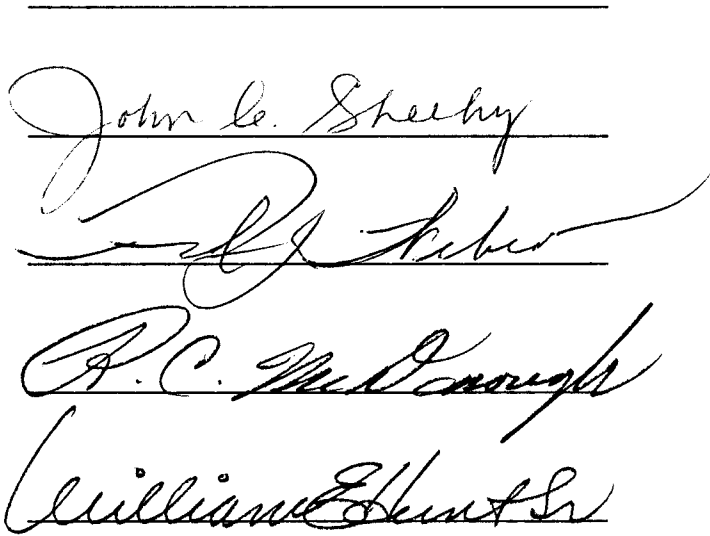 John C. Sheehy
Weber
R. C. McDonough
William E Hunt Sr